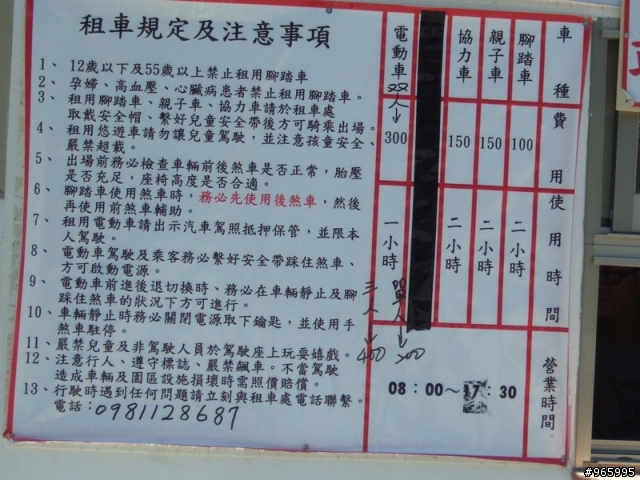 租車規定及注意事項
1、 12歲以下及55歲以上禁止租用腳踏車
2、 孕婦、高血壓、心臟病患者禁止租用腳踏車。
3、 租用腳踏車、親子車、協力車請於租車處
取戴安全帽、繫好兒童安全帶後方可騎乘出場。
4、 租用悠遊車請勿讓兒童駕駛，並注意孩童安全、
嚴禁超載。
5、 出場前務必檢查車輛前後煞車是否正常，胎壓
是否充足，座椅高度是否合適。
6、 腳踏車使用煞車時，務必先使用後煞車，然後
再使用前煞車輔助。
7、 租用電動車請出示汽車駕照抵押保管，並限本
人駕駛。
8、 電動車駕駛及乘客務必繫好安全帶踩住煞車、
方可啟動電源。
9、 電動車前進後退切換時、務必在車輛靜止及腳
踩住煞車的狀況下方可進行。
10、 車輛靜止時務必關閉電源取下鑰匙，並使用手
煞車駐停。
11、 嚴禁兒童及非駕駛人員於駕駛座上玩耍嬉戲。
12、 注意行人、遵守標誌、嚴禁飆車。不當駕駛
造成車輛及園區設施損壞時需照價賠償。
13、 行駛時遇到任何問題請立刻與租車處電話聯繫。
電話：0981128687
車種 腳踏車 親子車 協力車 電動車 双人↓
費用 100 150 150 300
使用時間 二小時 二小時 二小時 一小時
單人↓ 200
三人↓ 400
營業時間 08：00～17：30
#965995